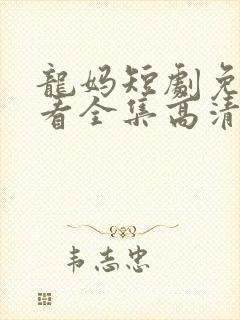 龍妈短劇免
看全集高清
韦志忠